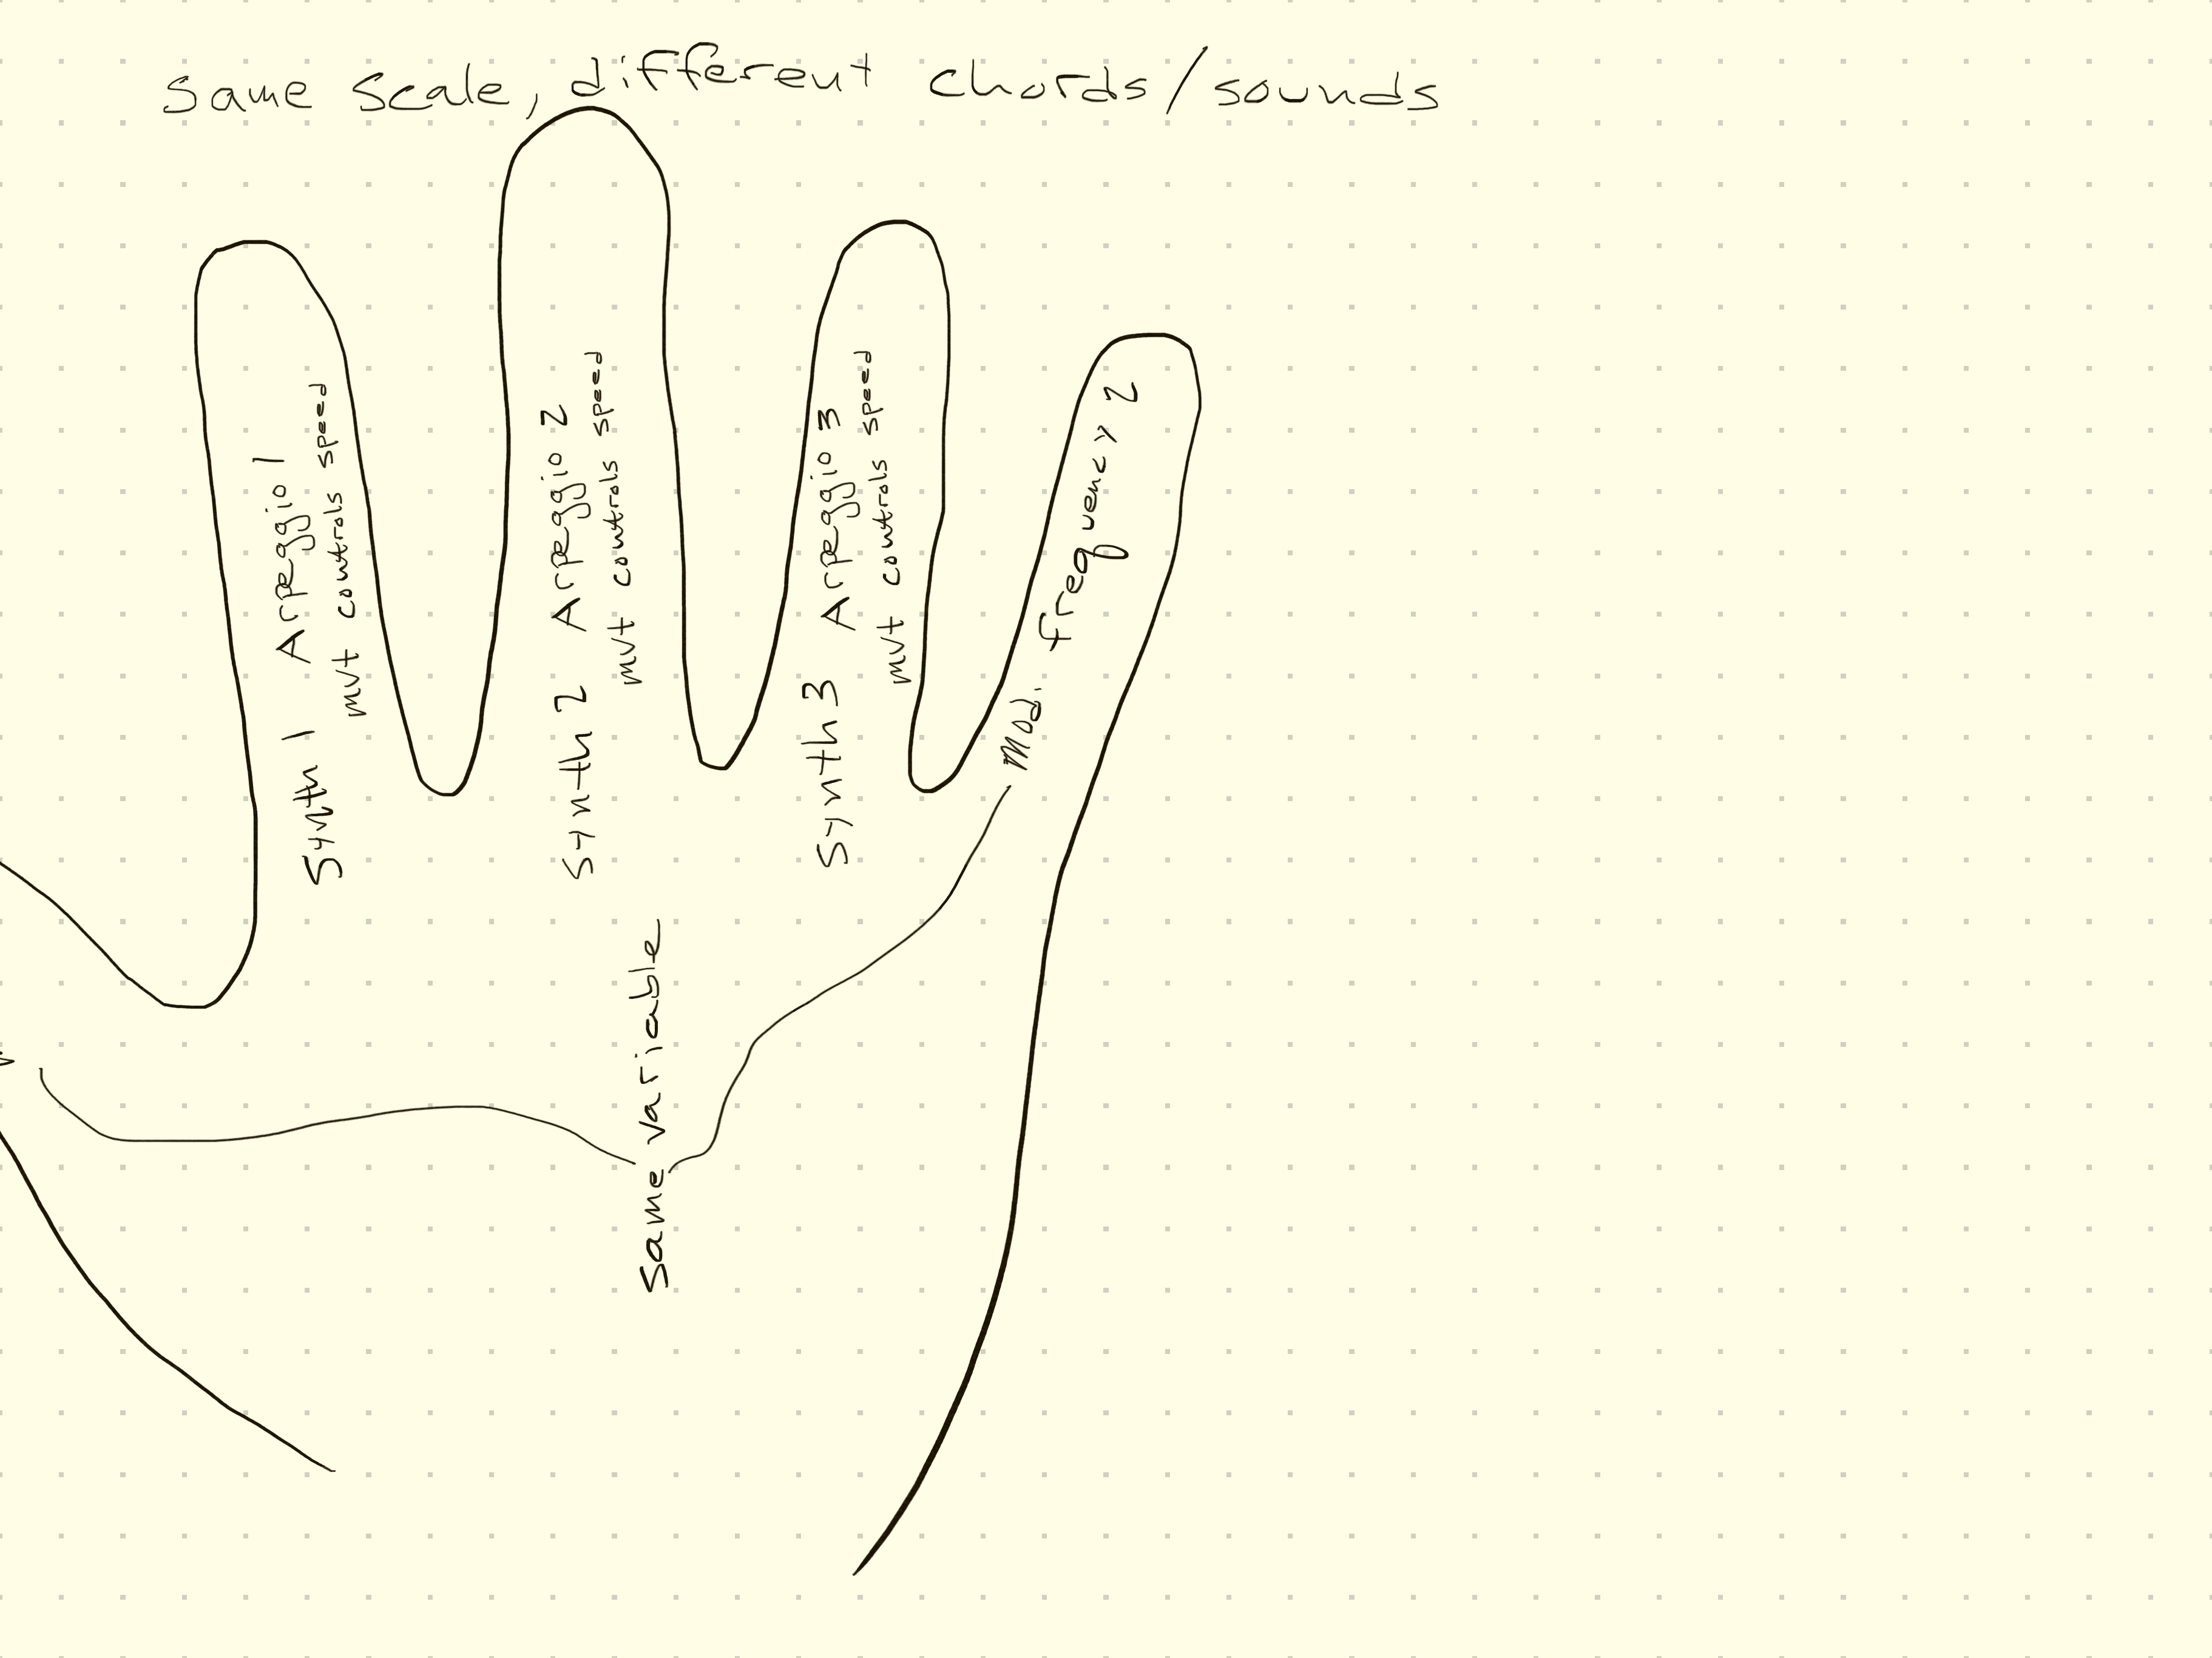 same scale, different chords/sounds
Synth 1 Arpeggio 1
mvt controls speed
Synth 2 Arpeggio 2
mvt controls speed
Synth 3 Arpeggio 3
mvt controls speed
Mod. frequency 2
Same variable